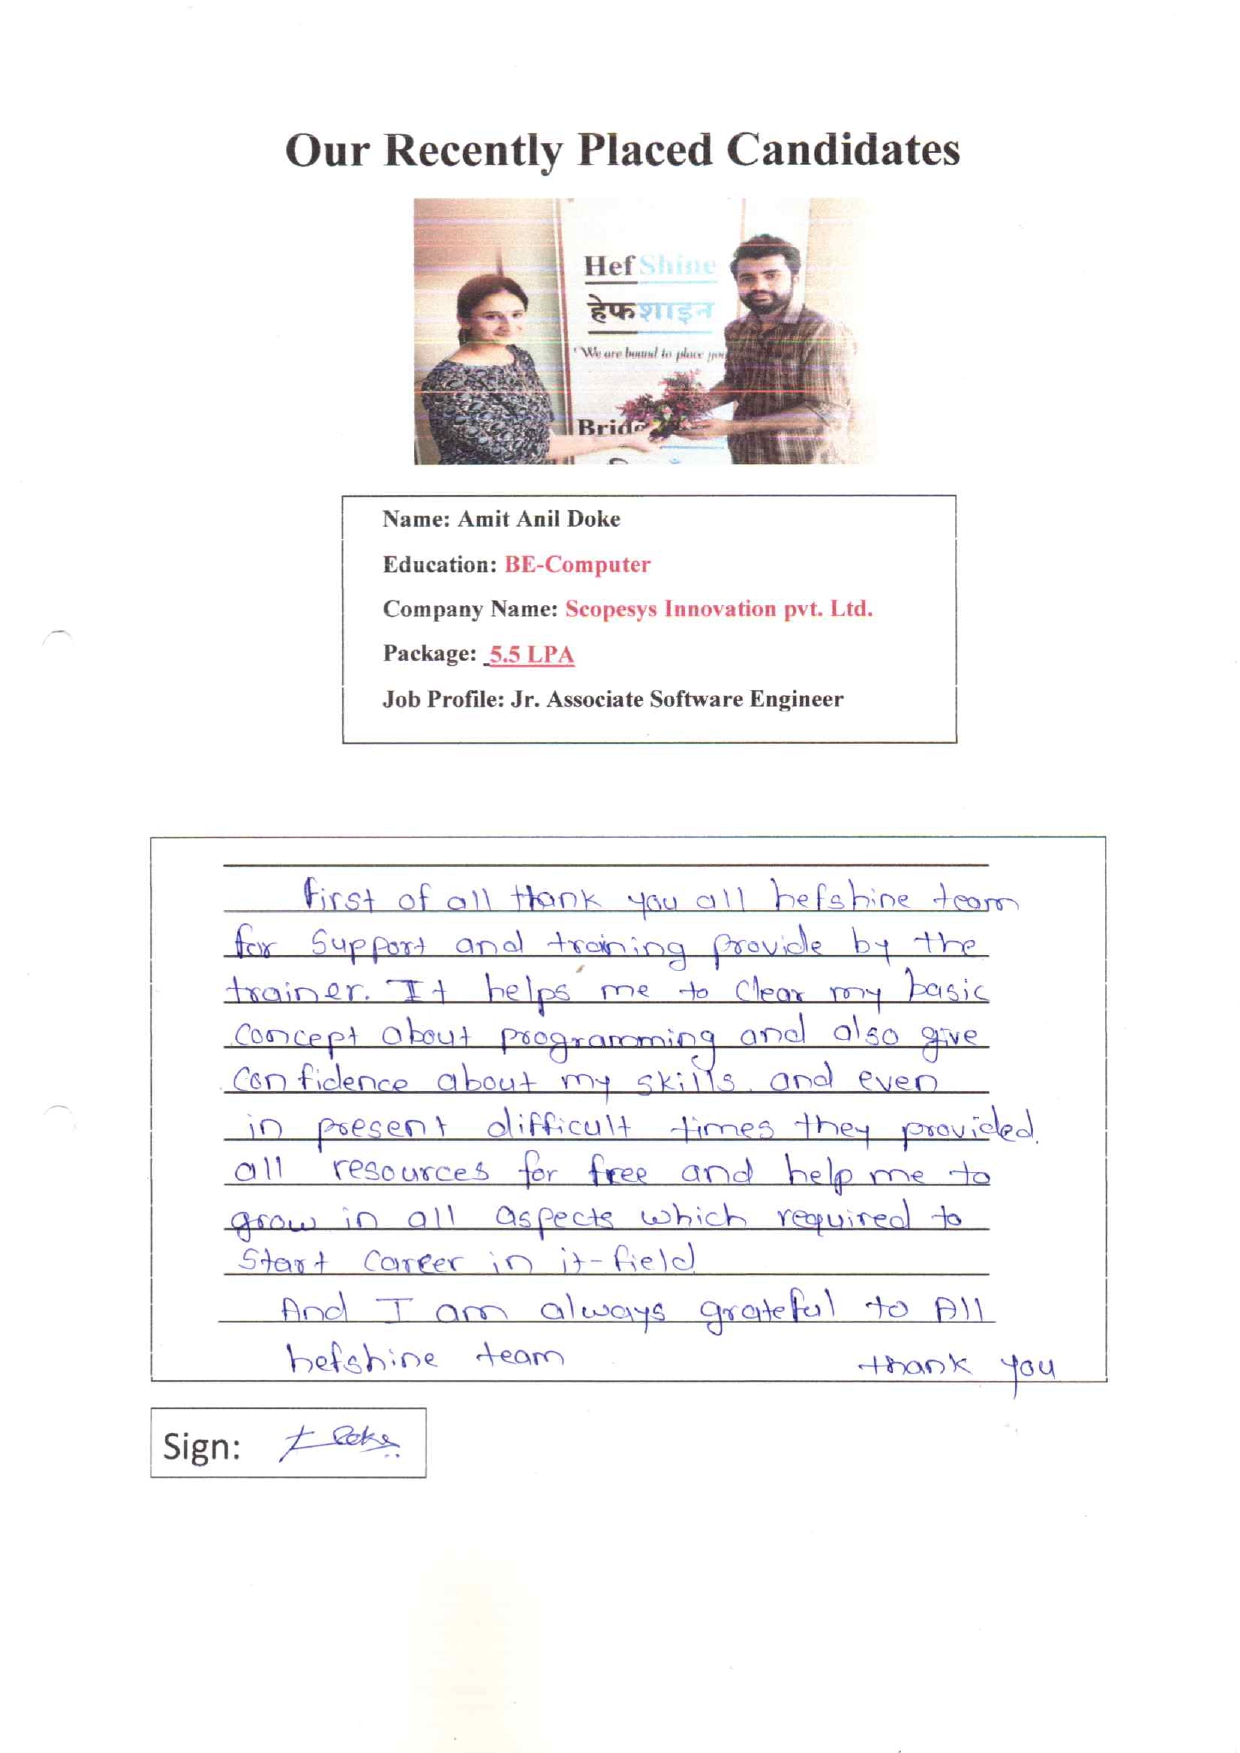 Our Recently Placed Candidates
HefShine
हेफशाइन
"We are bound to place you
Bridg
Name: Amit Anil Doke
Education: BE-Computer
Company Name: Scopesys Innovation pvt. Ltd.
Package: 5.5 LPA
Job Profile: Jr. Associate Software Engineer
first of all thank you all hefshine team
for support and training provide by the
trainer. It helps me to clear my basic
concept about programming and also give
confidence about my skills. and even
in present difficult times they provided
all resources for free and help me to
grow in all aspects which required to
start career in it-field
And I am always grateful to All
hefshine team thank you
Sign: Doke